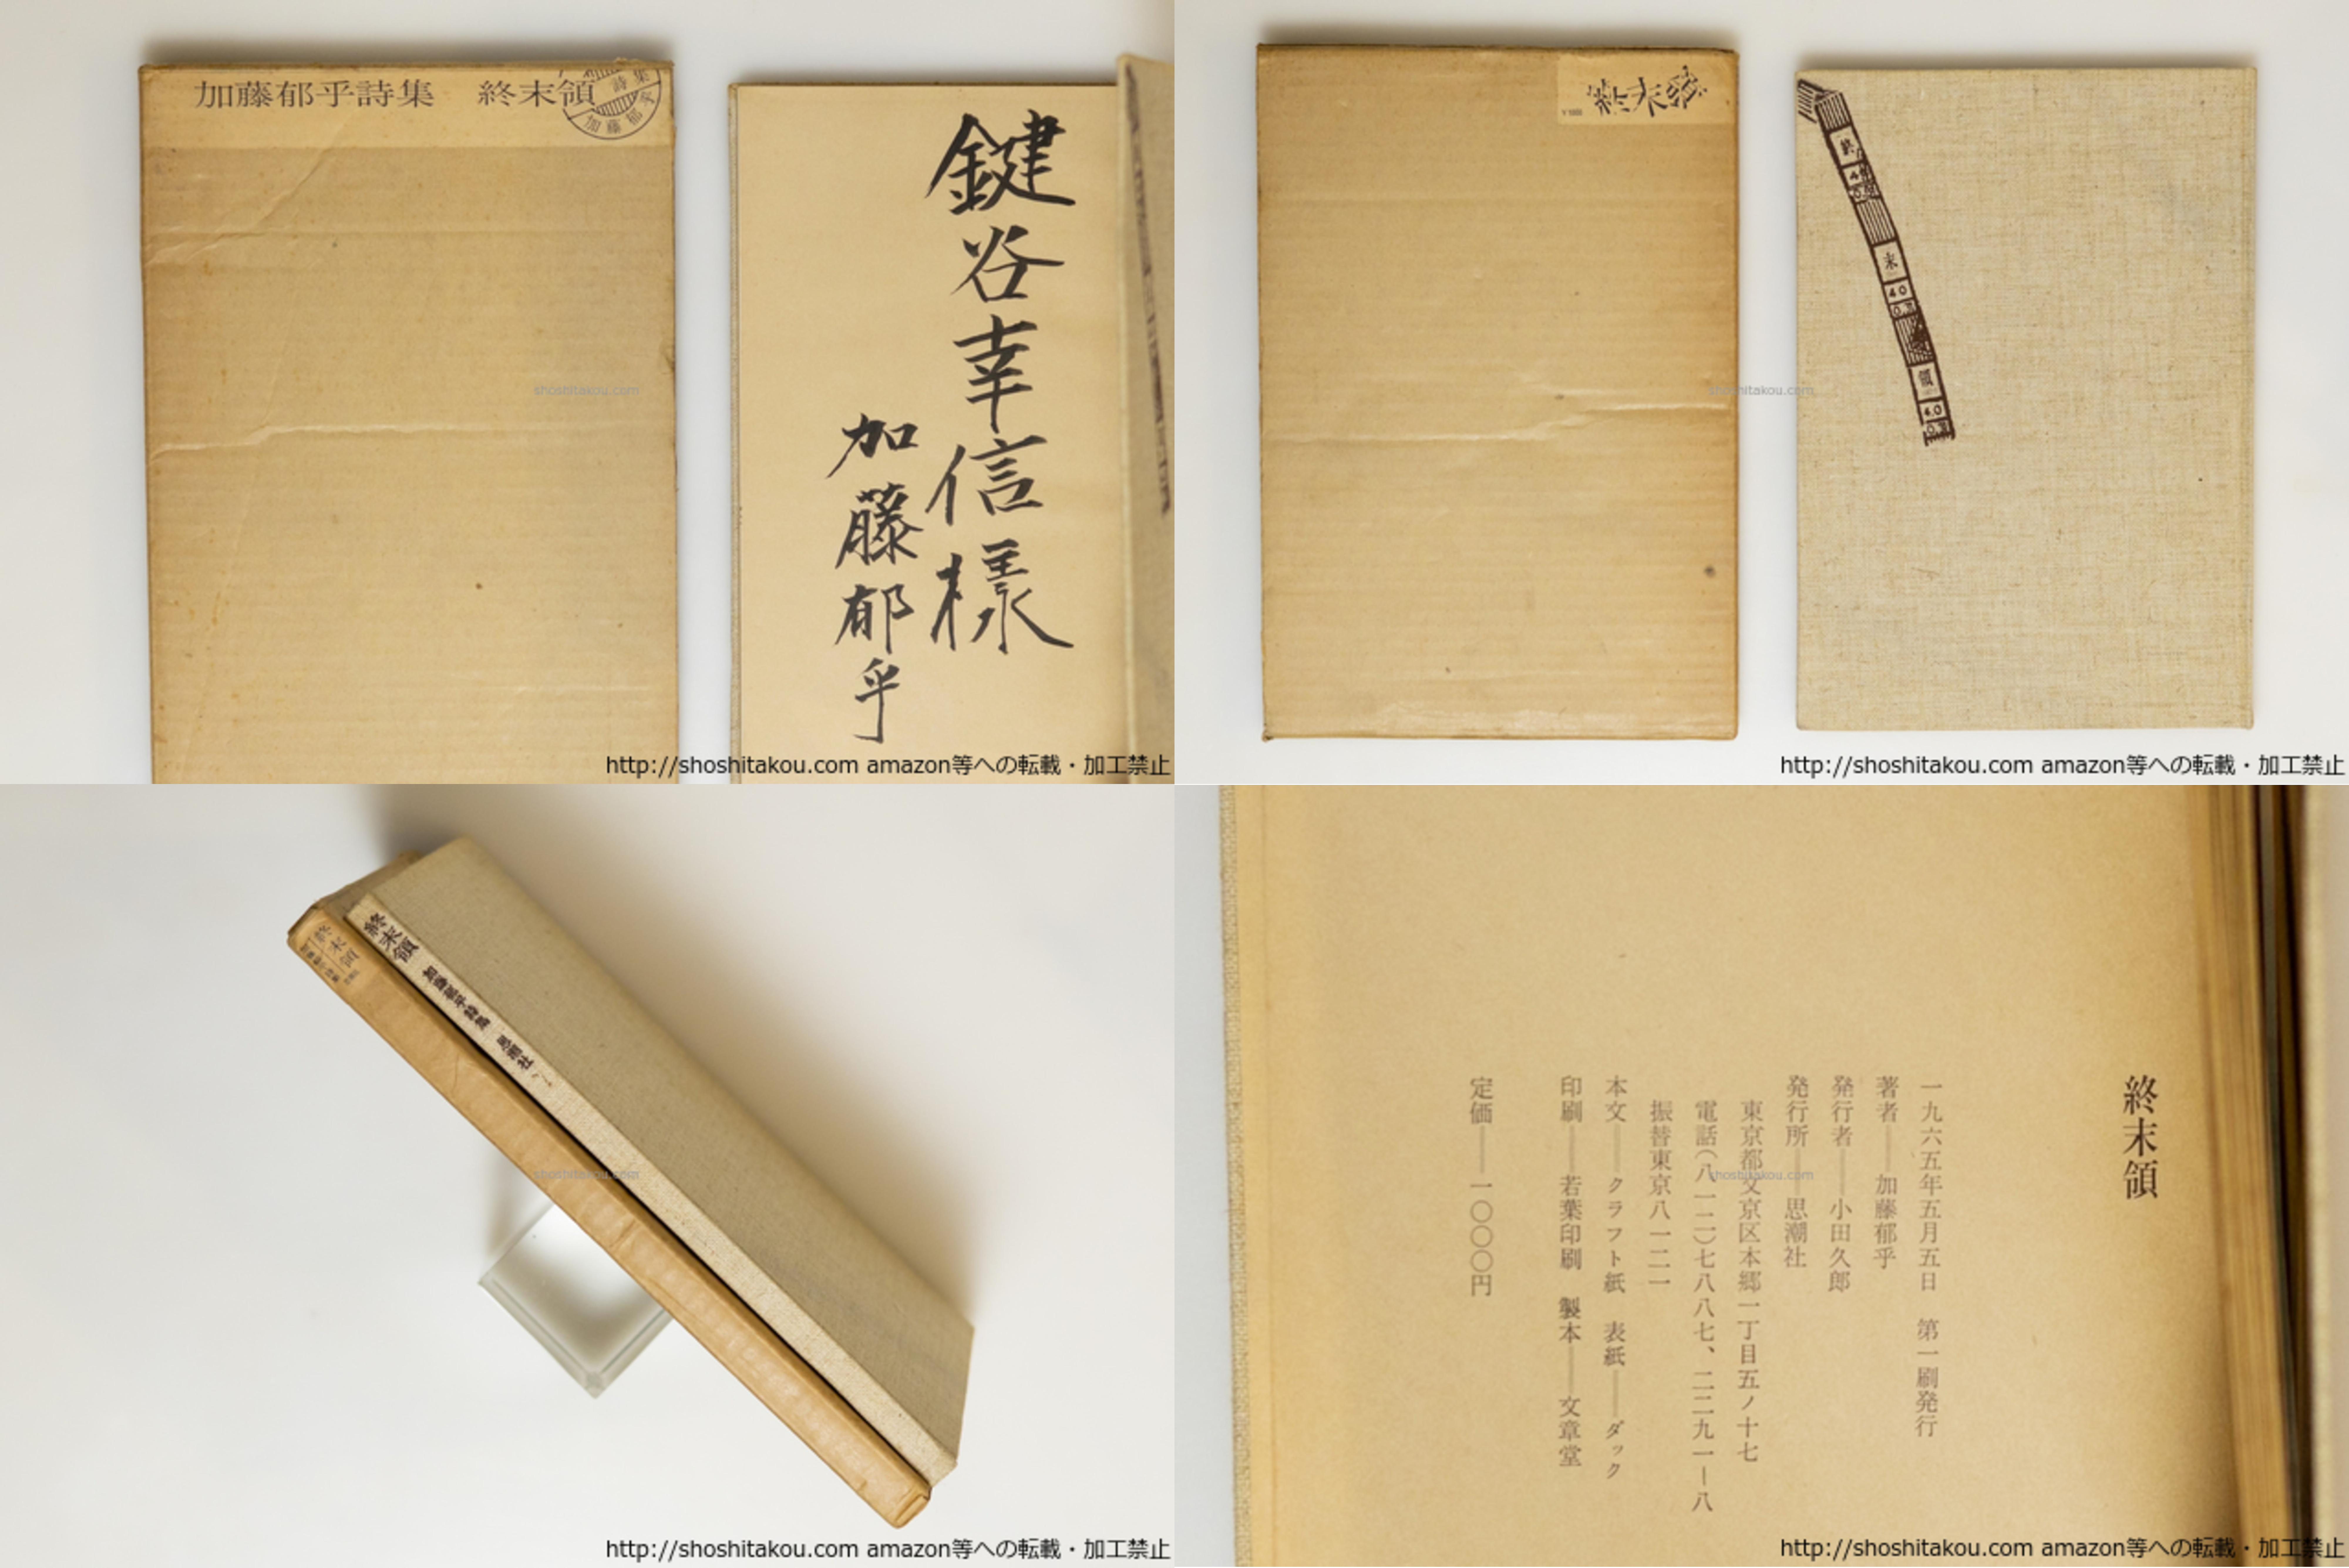 加藤郁乎詩集 終末領
詩集
加藤郁乎
鍵谷幸信様
加藤郁乎
shoshitakou.com
http://shoshitakou.com amazon等への転載・加工禁止
終末領
終
末
40
領
4.0
shoshitakou.com
http://shoshitakou.com amazon等への転載・加工禁止
終末領
終末領 加藤郁乎詩集 思潮社
shoshitakou.com
http://shoshitakou.com amazon等への転載・加工禁止
終末領
一九六五年五月五日 第一刷発行
著者――加藤郁乎
発行者――小田久郎
発行所――思潮社
東京都文京区本郷一丁目五ノ十七
電話(八一二)七八八七、二二九一―八
振替東京八一二一
本文――クラフト紙 表紙――ダック
印刷――若葉印刷 製本――文章堂
定価――一〇〇〇円
shoshitakou.com
http://shoshitakou.com amazon等への転載・加工禁止